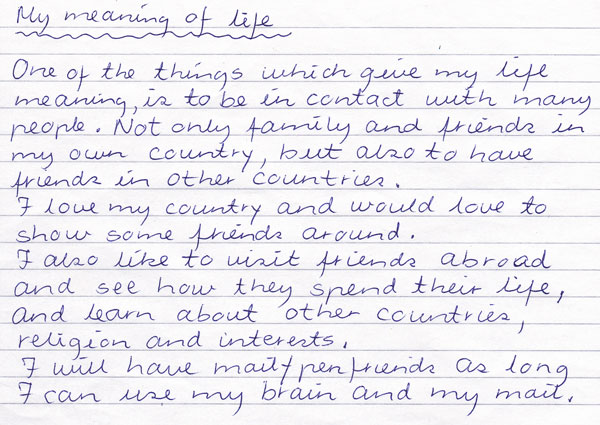 My meaning of life
One of the things which give my life
meaning, is to be in contact with many
people. Not only family and friends in
my own country, but also to have
friends in other countries.
I love my country and would love to
show some friends around.
I also like to visit friends abroad
and see how they spend their life,
and learn about other countries,
religion and interests.
I will have mail/penfriends as long
I can use my brain and my mail.